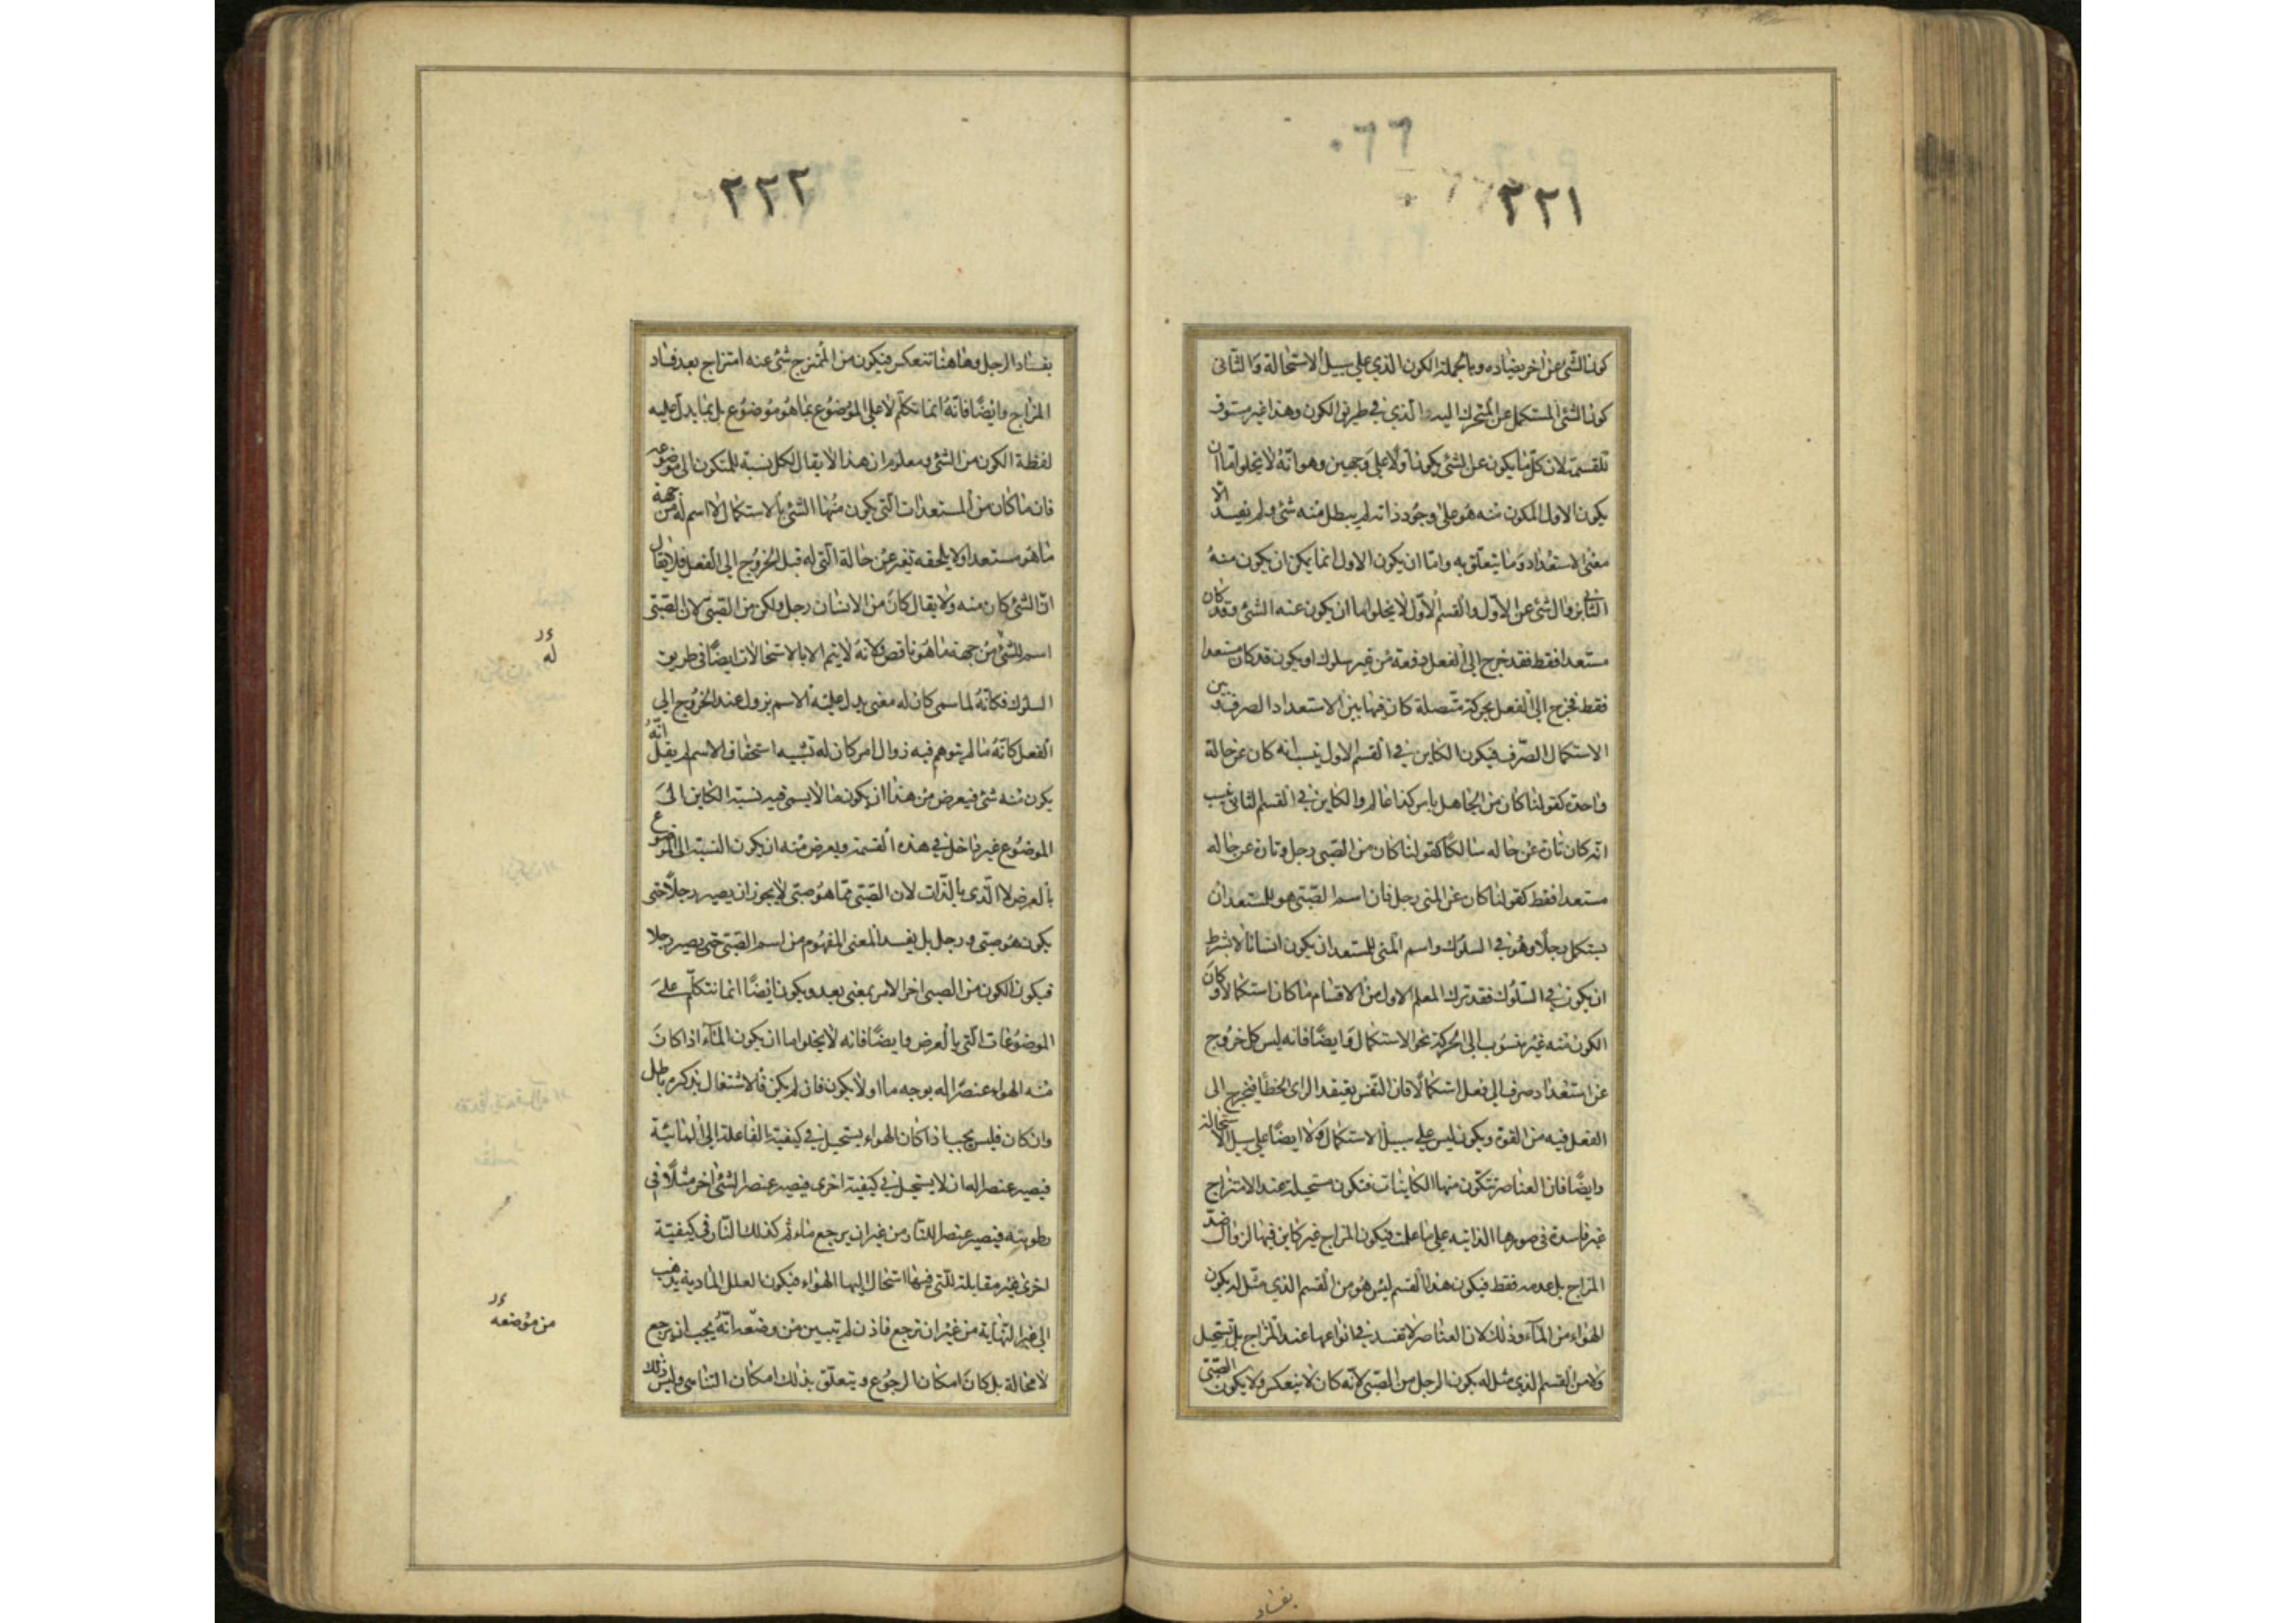 ٢٢١
٠٦٦
كون الشئ عن اخر بضاده وبالجملة الكون الذي على سبيل الاستحالة والثانى
كون الشئ المستكمل عن المتحرك اليه الذي في طريق الكون وهذا غير مستوف
للقسمة لان كل ما يكون عن الشئ يكون اولا على وجهين وهو انه لا يخلو اما ان
يكون الاول المكون منه هو على وجود ذاته لم يبطل منه شئ ولم يفسد الا
معنى الاستعداد وما يتعلق به واما ان يكون الاول انما يمكن ان يكون منه
الثانى بزوال شئ عن الاول والقسم الاول لا يخلو اما ان يكون عنه الشئ وقد كان
مستعدا فقط فقد خرج الى الفعل دفعة من غير سلوك او يكون قد كان مستعدا
فقط فخرج الى الفعل بحركة متصلة كان فيها بين الاستعداد الصرف وبين
الاستكمال الصرف فيكون الكاين في القسم الاول ينسب انه كان عن حالة
واحدة كقولنا كان من الجاهل بامر كذا عالم والكاين في القسم الثانى ينسب
انه كان تارة عن حاله سالكا كقولنا كان من الصبى رجل وتارة عن حاله
مستعدا فقط كقولنا كان عن المنى رجل فان اسم الصبى هو للمستعد ان
يستكمل رجلا وهو في السلوك واسم المنى للمستعد ان يكون انسانا لا بشرط
ان يكون في السلوك فقد ترك المعلم الاول من الاقسام ما كان استكمالا وكان
الكون منه غير منسوب الى الحركة نحو الاستكمال وايضا فانه ليس كل خروج
عن استعداد صرف الى فعل استكمالا فان النفس يعتقد الراى الخطأ فيخرج الى
الفعل فيه من القوة ويكون ليس على سبيل الاستكمال ولا ايضا على سبيل الاستحالة
وايضا فان العناصر تتكون منها الكاينات فتكون مستحيلة عند الامتزاج
غير فاسدة فى صورها الذاتيه على ما علمت فيكون المزاج غير كاين فيها لزوال ضد
المزاج بل عدمه فقط فيكون هذا القسم ليس هو من القسم الذي مثل له بكون
الهواء من الماء وذلك لان العناصر لا تفسد في انواعها عند المزاج بل تستحيل
ولا من القسم الذي مثل له بكون الرجل من الصبى لانه كان لا ينعكس ولا يكون الصبى
بفساد
٢٢٢
بفساد الرجل وهاهنا تنعكس فيكون من الممتزج شئ عنه امتزاج بعد فساد
المزاج وايضا فانه انما تكلم لا على الموضوع بما هو موضوع بل بما يدل عليه
لفظة الكون من الشئ ومعلوم ان هذا لا يقال لكل نسبة للمتكون الى موضوعه
فان ما كان من المستعدات التى يكون منها الشئ بالاستكمال لا اسم له من جهة
ما هو مستعد او لا يلحقه تغير عن حالة التى له قبل الخروج الى الفعل فلا يقال
ان الشئ كان منه ولا يقال كان من الانسان رجل ولكن من الصبى لان الصبى
اسم للشئ من جهة ما هو ناقص ولانه لا يتم الا بالاستحالات ايضا فى طريق
السلوك فكانه لما سمى كان له معنى يدل عليه الاسم يزول عند الخروج الى
الفعل كانه ما لم يتوهم فيه زوال امر كان له تنبيه استحقاق الاسم لم يقل انه
يكون منه شئ فيعرض من هذا ان يكون ما لا يسمى فيه نسبة الكاين الى
الموضوع غير داخل في هذه القسمة ويعرض منه ان يكون النسبة الى الموضوع
بالعرض لا الذى بالذات لان الصبى مما هو صبى لا يجوز ان يصير رجلا حتى
يكون هو صبى ورجل بل يفسد المعنى المفهوم من اسم الصبى حتى يصير رجلا
فيكون الكون من الصبى اخر الامر بمعنى بعد ويكون ايضا انما نتكلم على
الموضوعات التى بالعرض وايضا فانه لا يخلو اما ان يكون الماء اذا كان
منه الهواء عنصرا له بوجه ما او لا يكون فان لم يكن فالاشتغال بذكره باطل
وان كان فليس يجب اذا كان الهواء يستحيل في كيفية الفاعلة الى المائية
فيصير عنصرا له ان لا يستحيل في كيفية اخرى فيصير عنصرا لشئ اخر مثلا فى
رطوبته فيصير عنصرا للنار من غير ان يرجع ماء ثم كذلك النار فى كيفية
اخرى غير مقابلة للتى فيها استحال اليها الهواء فيكون العلل المادية يذهب
الى غير النهاية من غير ان ترجع فاذن لم تبين من وضعه انه يجب ان يرجع
لا محالة بل كان امكان الرجوع ويتعلق بذلك امكان التناهى وليس ذلك
له
من موضعه